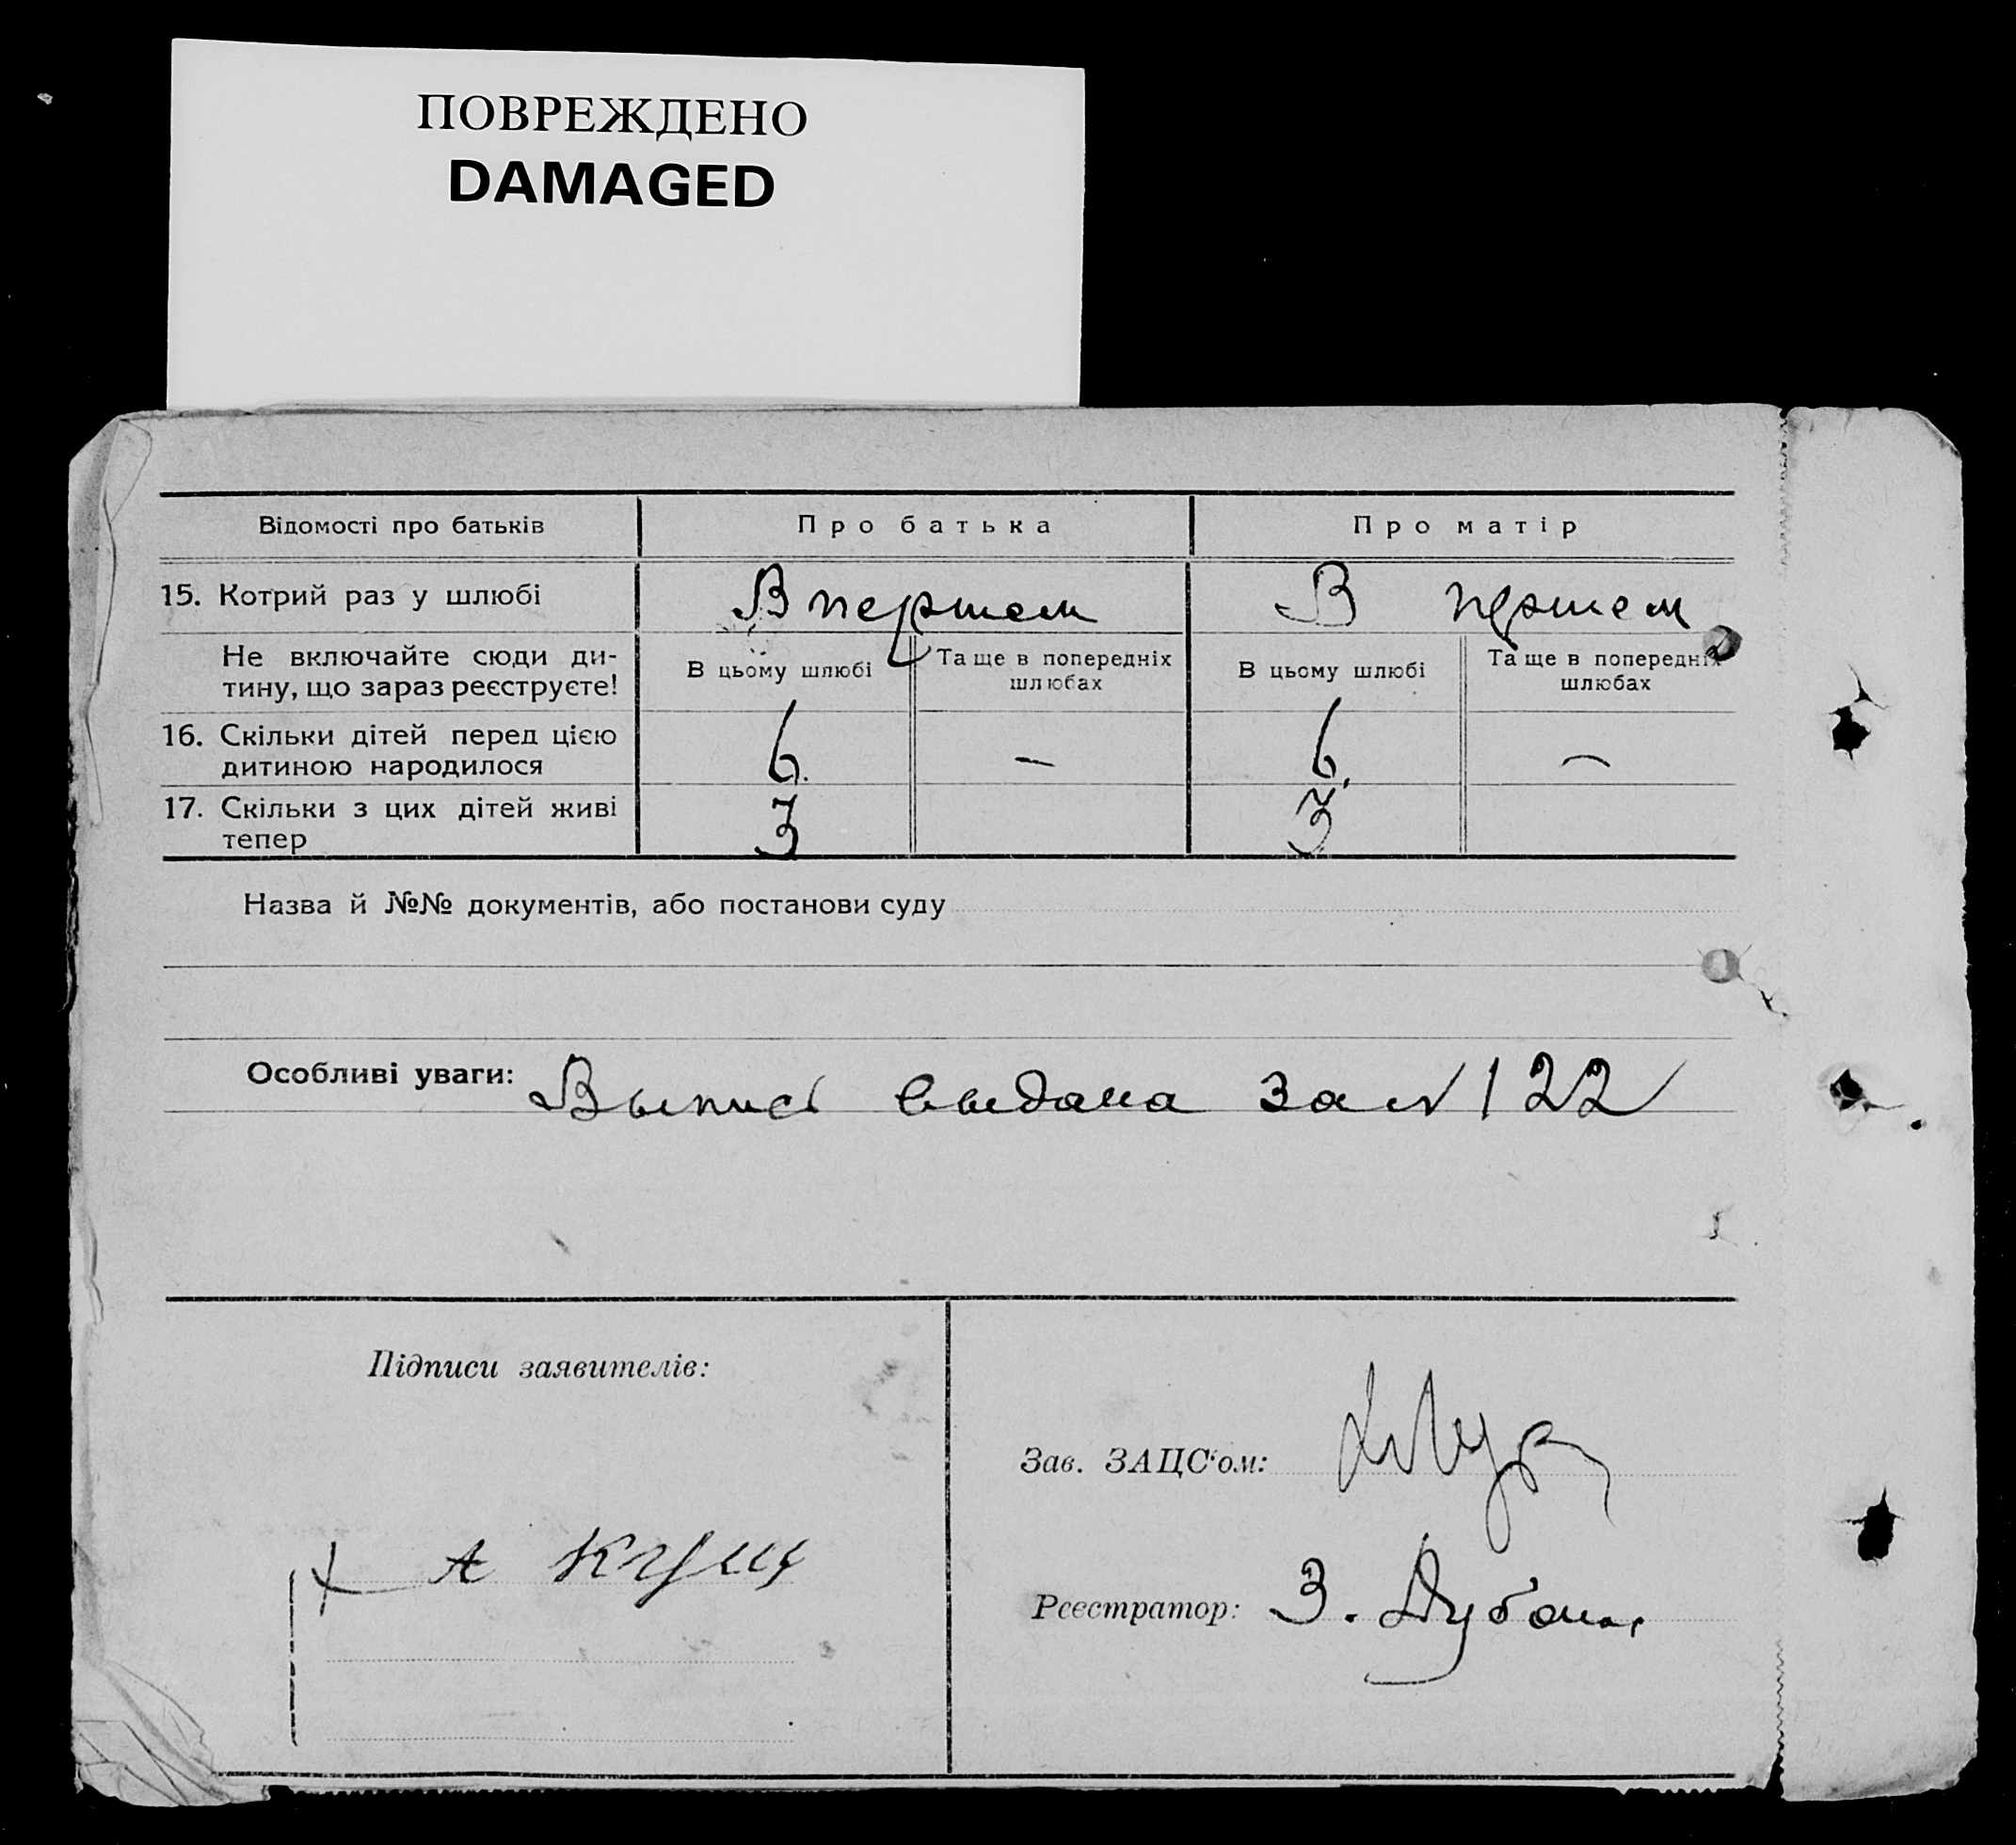 ПОВРЕЖДЕНО
DAMAGED
Відомості про батьків
Про батька
Про матір
15. Котрий раз у шлюбі
В першем
В першем
Не включайте сюди ди-
тину, що зараз реєструєте!
В цьому шлюбі
Та ще в попередніх
шлюбах
В цьому шлюбі
Та ще в попередніх
шлюбах
16. Скільки дітей перед цією
дитиною народилося
6.
—
6.
—
17. Скільки з цих дітей живі
тепер
3
3
Назва й №№ документів, або постанови суду
Особливі уваги: Выпись выдана за № 122
Підписи заявителів:
Зав. ЗАЦС'ом:
А Кущ
Реєстратор: З.